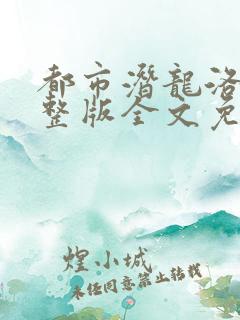 都市潛龍洛
整版全文免
煌小城
未经同意禁止转载